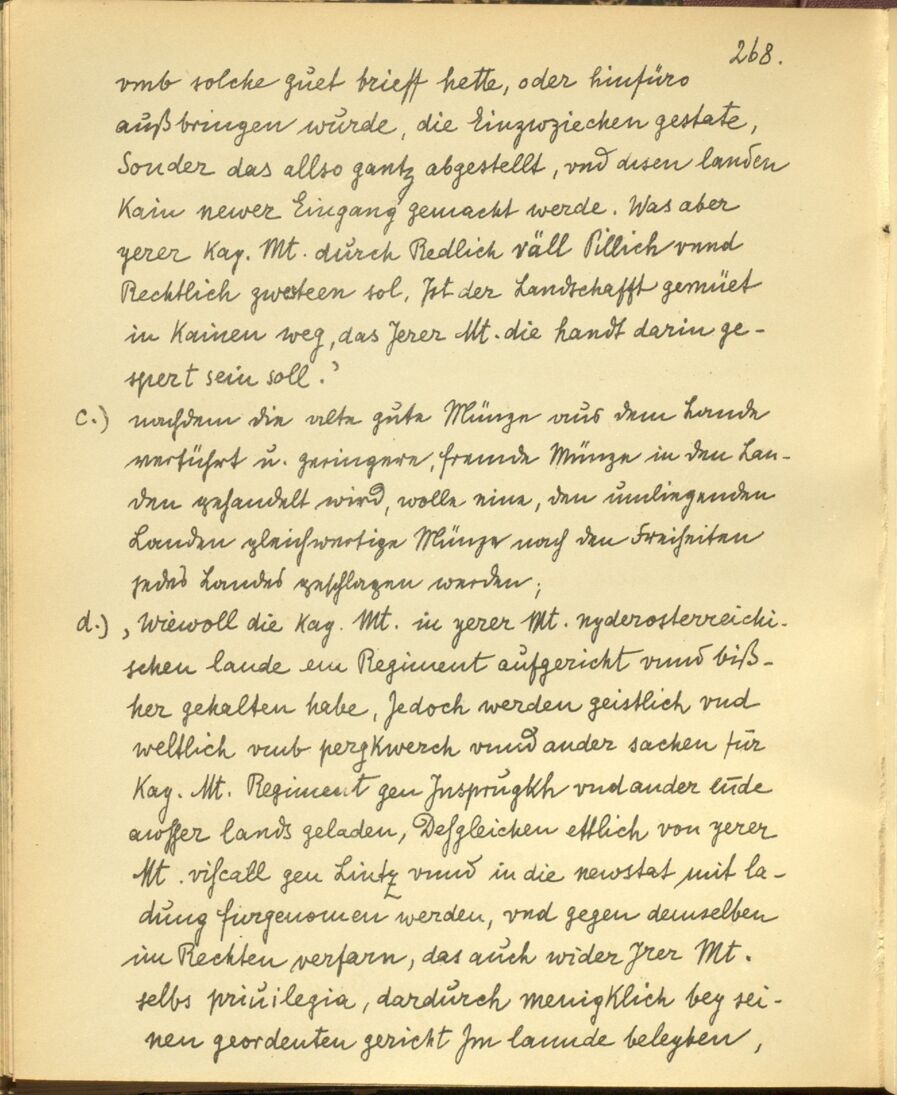 268.
vmb solche guet brieff hette, oder hinfüro
außbringen wurde, die Einzwziechen gestate,
Sonder das allso gantz abgestellt, vnd disen landen
Kain newer Eingang gemacht werde. Was aber
yerer Kay. Mt. durch Redlich väll Pillich vnnd
Rechtlich zwesteen sol, Ist der Landschafft gemüet
in Kainen weg, das Jerer Mt. die handt darin ge-
spert sein soll.'
c.) nachdem die alte gute Münze aus dem Lande
verführt u. geringere, fremde Münze in den Lan-
den gehandelt wird, wolle eine, den umliegenden
Landen gleichwertige Münze nach den Freiheiten
jedes Landes geschlagen werden;
d.) ‚Wiewoll die Kay. Mt. in yerer Mt. nyderosterreichi-
schen lande ein Regiment aufgericht vnnd biß-
her gehalten habe, Jedoch werden geistlich vnd
weltlich vmb pergkwerch vnnd ander sachen für
Kay. Mt. Regiment gen Jnsprugkh vnd ander ende
awsser lands geladen, Desgleichen ettlich von yerer
Mt. viscall gen Lintz vnnd in die newstat mit la-
dung furgenomen werden, vnd gegen demselben
im Rechten verfarn, das auch wider Jrer Mt.
selbs priuilegia, dardurch menigklich bey sei-
nen geordenten gericht Jm lannde beleyben,